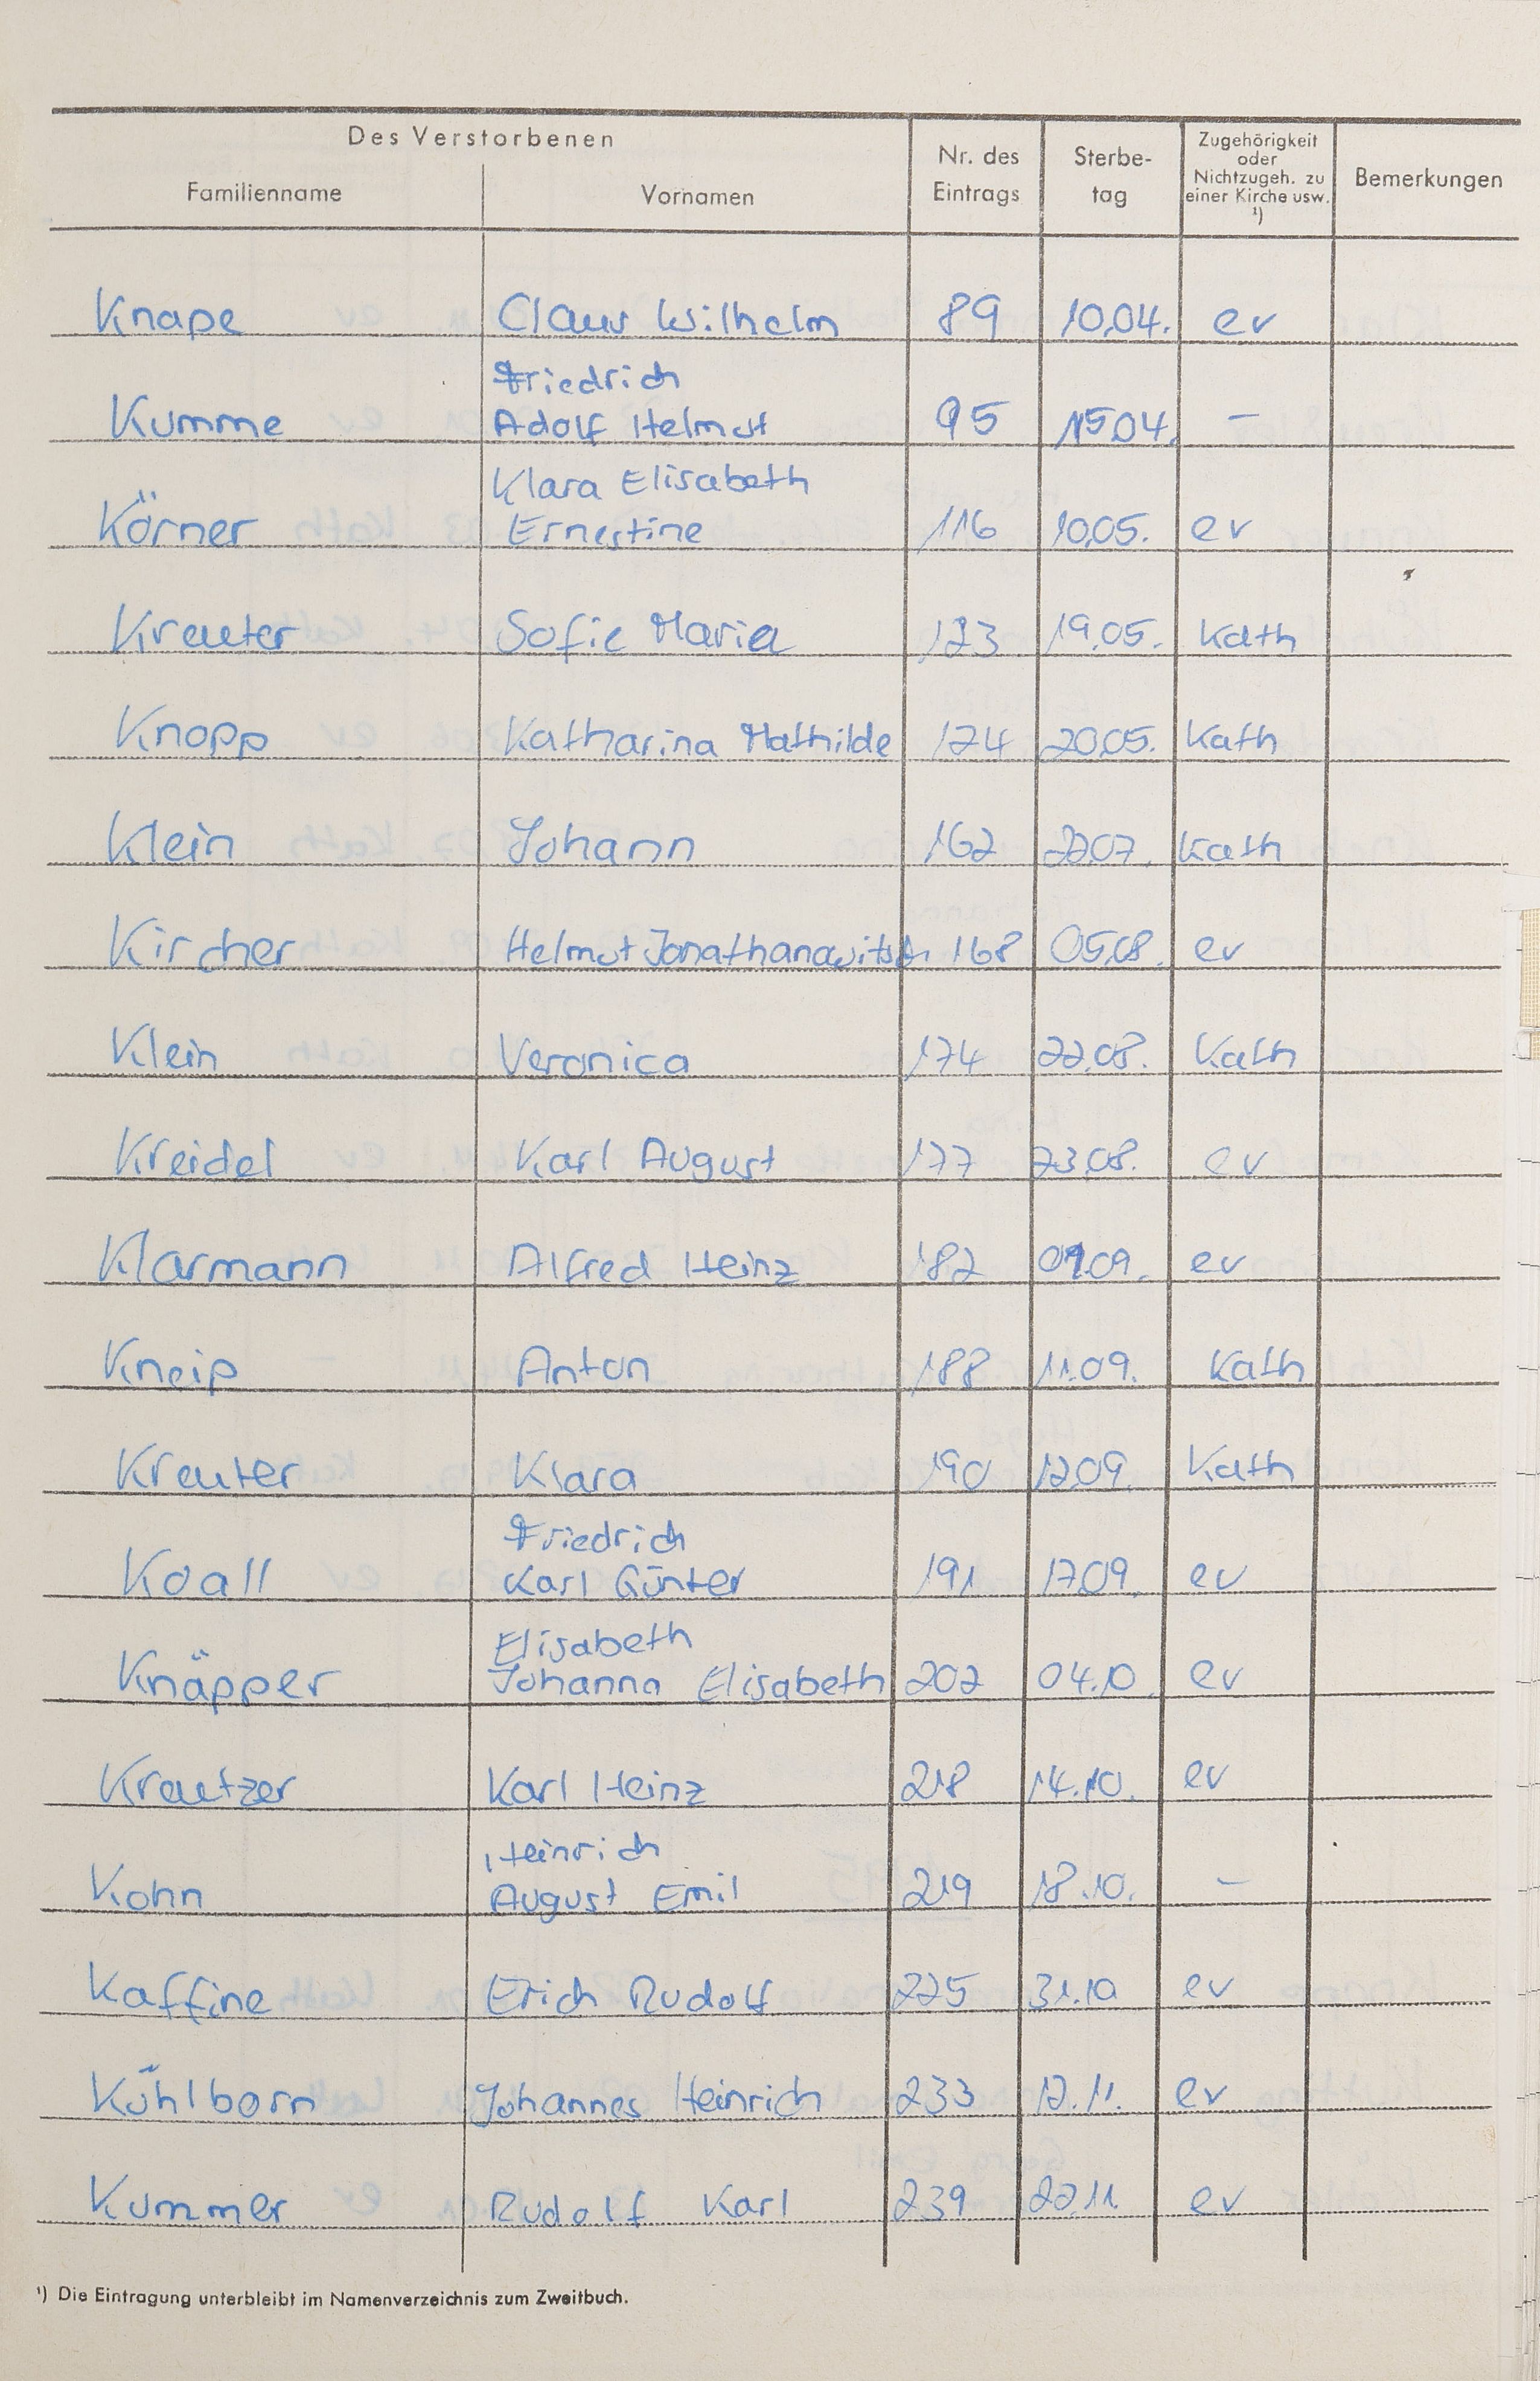 Des Verstorbenen
Familienname Vornamen Nr. des Eintrags Sterbe-tag Zugehörigkeit oder Nichtzugeh. zu einer Kirche usw. ¹) Bemerkungen
Knape Claus Wilhelm 89 10.04. ev
Friedrich
Kumme Adolf Helmut 95 15.04. –
Klara Elisabeth
Körner Ernestine 116 10.05. ev
Kreuter Sofie Maria 123 19.05. Kath
Knopp Katharina Mathilde 124 20.05. Kath
Klein Johann 162 22.07. Kath
Kircher Helmut Jonathanowitsch 168 05.08. ev
Klein Veronica 174 22.08. Kath
Kreidel Karl August 177 23.08. ev
Klarmann Alfred Heinz 182 09. ev
Kneip Anton 188 11.09. Kath
Kreuter Klara 190 12.09. Kath
Friedrich
Koall Karl Günter 191 17.09. ev
Elisabeth
Knäpper Johanna Elisabeth 202 04.10. ev
Kreutzer Karl Heinz 218 14.10. ev
Heinrich
Kohn August Emil 219 18.10. –
Kaffine Erich Rudolf 225 31.10 ev
Kühlborn Johannes Heinrich 233 12.11. ev
Kummer Rudolf Karl 239 22.11. ev
¹) Die Eintragung unterbleibt im Namenverzeichnis zum Zweitbuch.